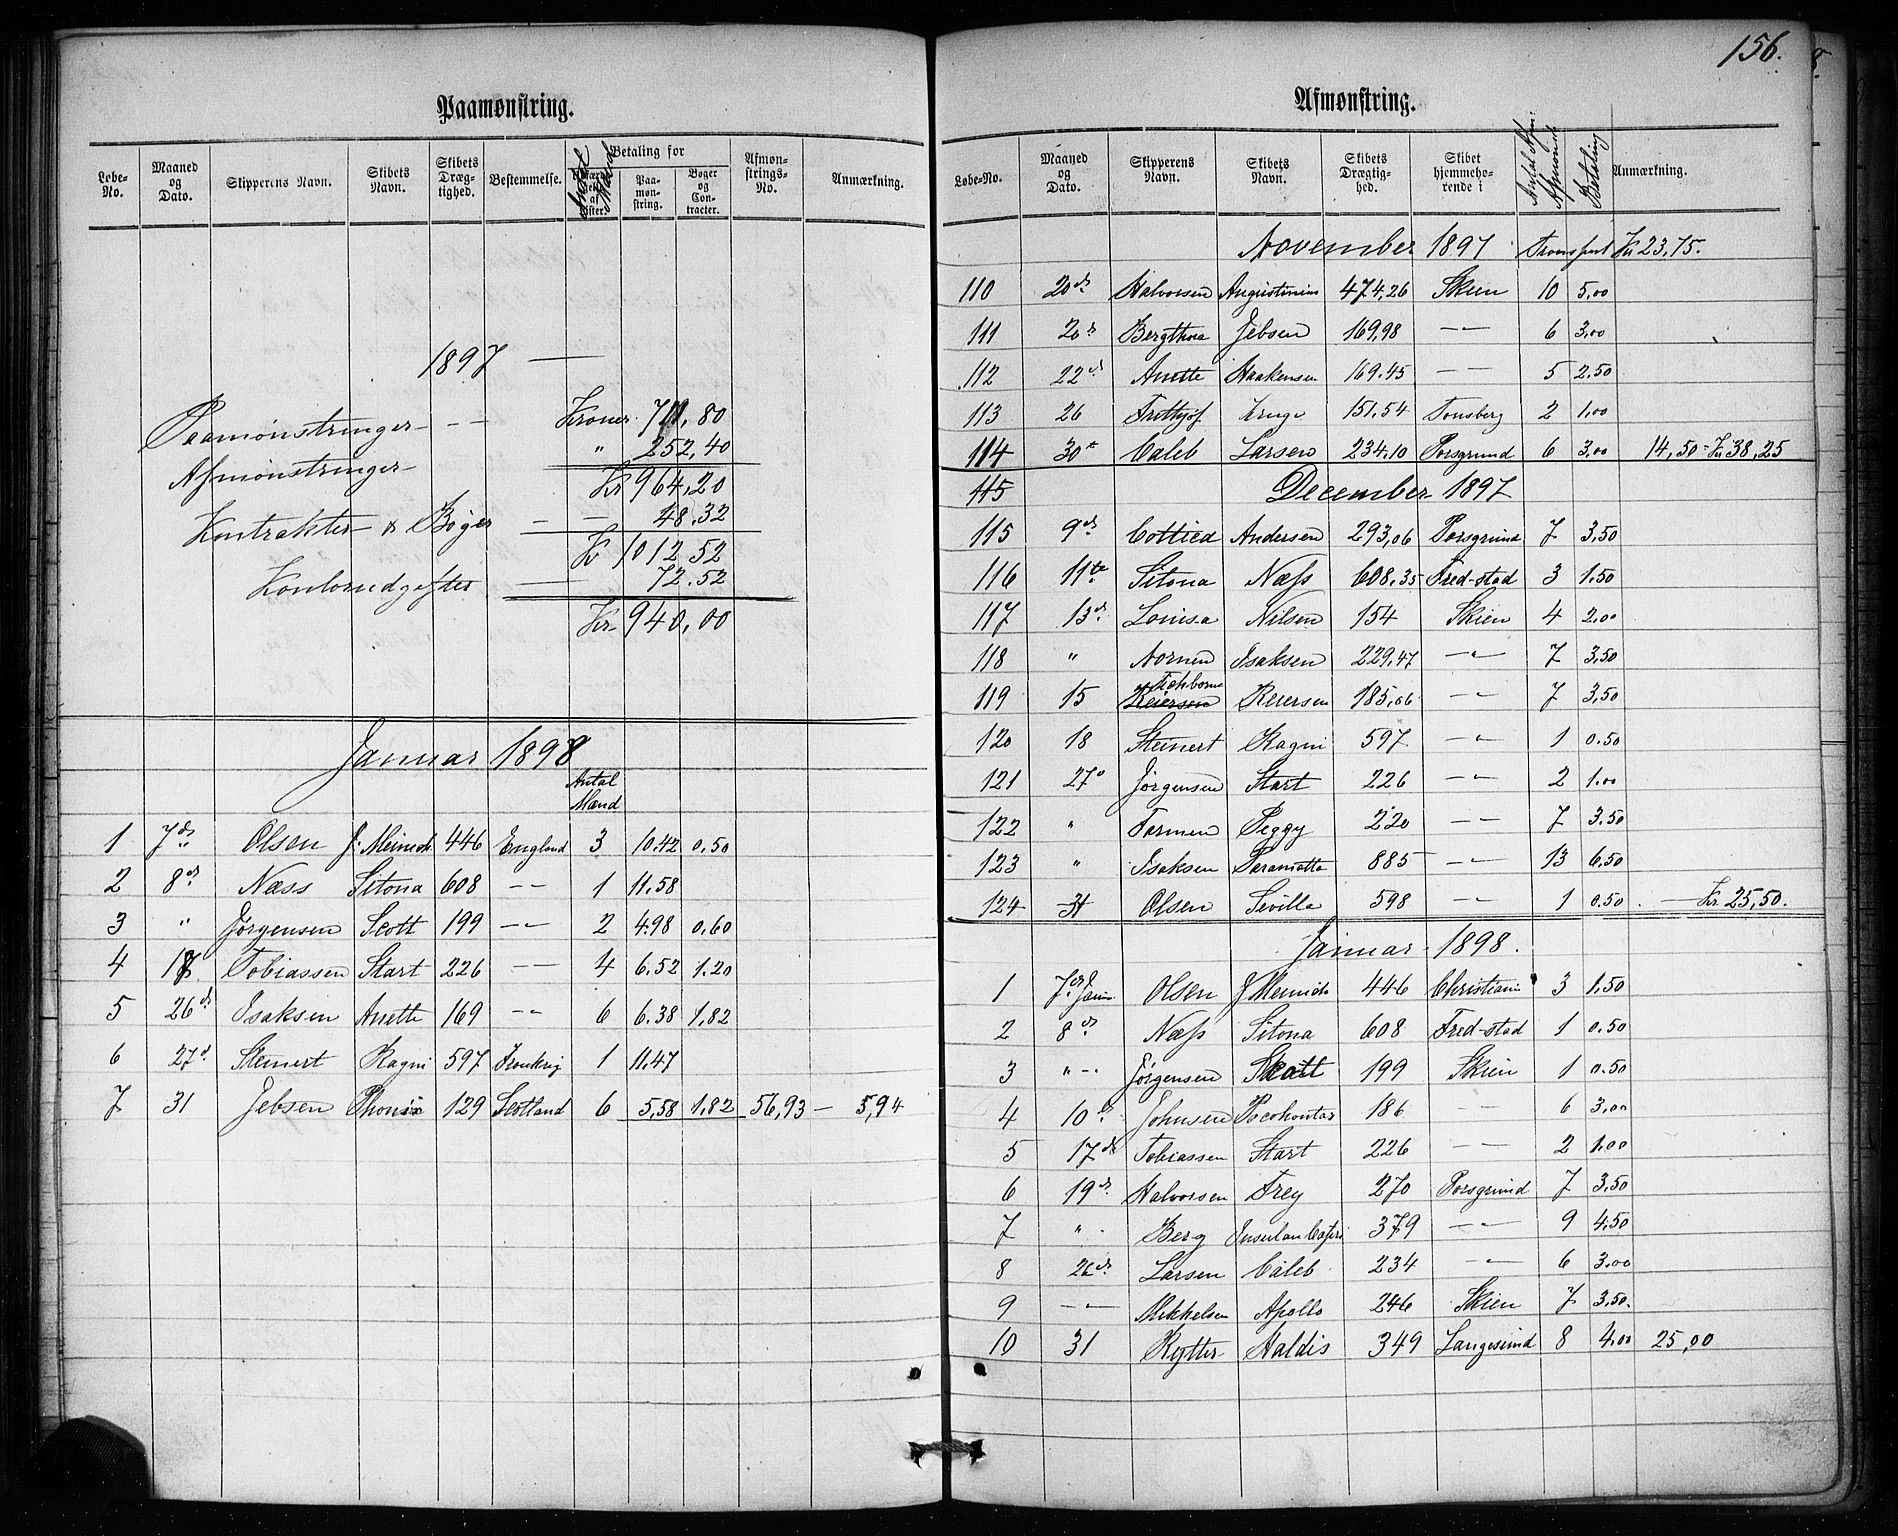 156.
Paamønstring.
Løbe-No. | Maaned og Dato. | Skipperens Navn. | Skibets Navn. | Skibets Drægtighed. | Bestemmelse. | Antal Mand | Betaling for | Paamønstring. | Bøger og Contracter. | Afmønstrings-No. | Anmærkning.
1897 —
Paamønstringer — — Kroner 711,80
Afmønstringer " 252,40
Kr 964,20
Kontrakter & Bøger — — 48.32
Kr 1012,52
72.52
Kr 940,00
Januar 1898
Antal Mænd
1 7de Olsen J. Meinich 446 England 3 10.42 0.50
2 8d. Næss Sitona 608 —"— 1 11.58
3 " Jørgensen Scott 199 —"— 2 4.98 0.60
4 17 Tobiassen Start 226 —"— 4 6.52 1.20
5 26d. Isaksen Anette 169 —"— 6 6.38 1,82
6 27d. Steinert Ragni 597 Frankrig 1 11.47
7 31 Jebsen 129 Scotland 6 5,58 1,82 56,93 — 5,94
Afmønstring.
Løbe-No. | Maaned og Dato. | Skipperens Navn. | Skibets Navn. | Skibets Drægtighed. | Skibet hjemmehørende i | Antal Afmønstrede | Betaling | Anmærkning.
November 1897 Transport Kr 23,75.
110 20de Halvorsen Augustinius 474,26 Skien 10 5,00
111 20d. Bergthora Jebsen 169,98 —"— 6 3,00
112 22d. Anette Haakensen 169.45 —"— 5 2.50
113 26 Frithjof Kruge 151.54 Tønsberg 2 1,00
114 30te Caleb Larsen 234.10 Porsgrund 6 3,00 14,50 - Kr 38,25
115 December 1897
115 9d. Cottied Andersen 293,06 Porsgrund 7 3,50
116 11te Sitona Næss 608.35 Fred-stad 3 1.50
117 13d. Lovisa Nilsen 154 Skien 4 2.00
118 " Nornen Isaksen 229.47 —"— 7 3,50
119 15 Reiersen Tichborne Reiersen 185,06 —"— 7 3,50
120 18 Steinert Ragni 597 —"— 1 0.50
121 27d Jørgensen Start 226 —"— 2 1.00
122 " Tormen Peggy 220 —"— 7 3.50
123 " Isaksen Paramatta 885 —"— 13 6,50
124 31 Olsen Sevilla 598 —"— 1 0.50 . — Kr 25,50.
Januar 1898.
1 7de Janu. Olsen J Meinich 446 Christiania 3 1,50
2 8d. Næss Sitona 608 Fred-stad 1 0.50
3 "— Jørgensen Skott 199 Skien 1 0.50
4 10d. Johnsen Pocohontas 186 —"— 6 3,00
5 17de Tobiassen Start 226 —"— 2 1.00
6 19d. Halvorsen Frey 270 Porsgrund 7 3.50
7 " Berg Insulan 379 —"— 9 4.50
8 26d. Larsen Caleb 234 —"— 6 3.00
9 —"— Mikkelsen Apollo 246 Skien 7 3,50.
10 31 Rytter Haldis 349 Langesund 8 4.00 25,00